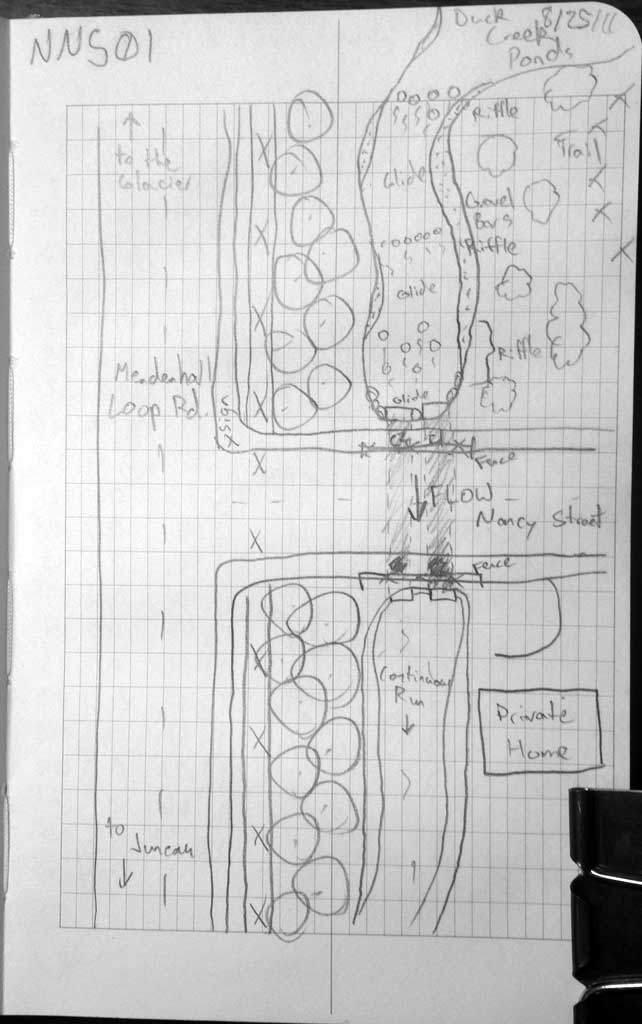 NNS01
Duck 8/25/11
Creek
Ponds
Riffle
to the
Glacier
Trail
Glide
Gravel
Bars
Riffle
Glide
Riffle
Mendenhall
Loop Rd.
Sign
Glide
Fence
FLOW
Nancy Street
Fence
Continuous
Run
Private
Home
to
Juneau